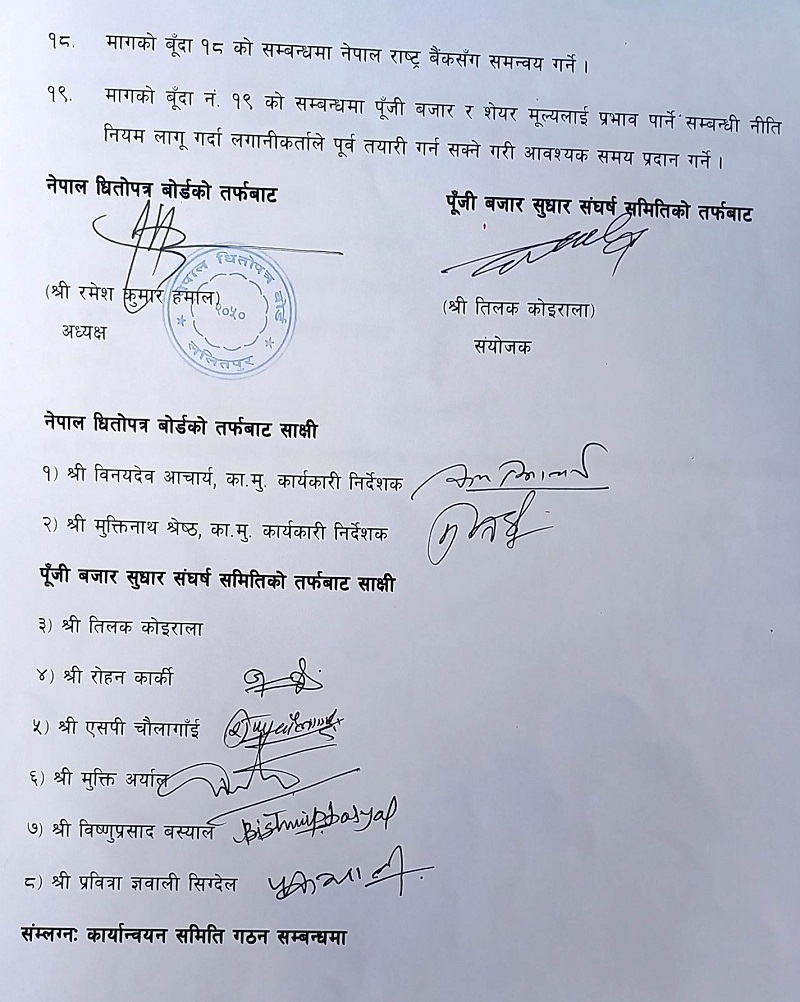 १८. मागको बूँदा १८ को सम्बन्धमा नेपाल राष्ट्र बैंकसँग समन्वय गर्ने ।
१९. मागको बूँदा नं. १९ को सम्बन्धमा पूँजी बजार र शेयर मूल्यलाई प्रभाव पार्ने सम्बन्धी नीति
नियम लागू गर्दा लगानीकर्ताले पूर्व तयारी गर्न सक्ने गरी आवश्यक समय प्रदान गर्ने ।
नेपाल धितोपत्र बोर्डको तर्फबाट
पूँजी बजार सुधार संघर्ष समितिको तर्फबाट
(श्री रमेश कुमार हमाल)
अध्यक्ष
नेपाल धितोपत्र बोर्ड
२०५०
ललितपुर
(श्री तिलक कोइराला)
संयोजक
नेपाल धितोपत्र बोर्डको तर्फबाट साक्षी
१) श्री विनयदेव आचार्य, का.मु. कार्यकारी निर्देशक
२) श्री मुक्तिनाथ श्रेष्ठ, का.मु. कार्यकारी निर्देशक
पूँजी बजार सुधार संघर्ष समितिको तर्फबाट साक्षी
३) श्री तिलक कोइराला
४) श्री रोहन कार्की
५) श्री एसपी चौलागाँई
६) श्री मुक्ति अर्याल
७) श्री विष्णुप्रसाद बस्याल
८) श्री प्रवित्रा ज्ञवाली सिग्देल
संम्लग्नः कार्यान्वयन समिति गठन सम्बन्धमा